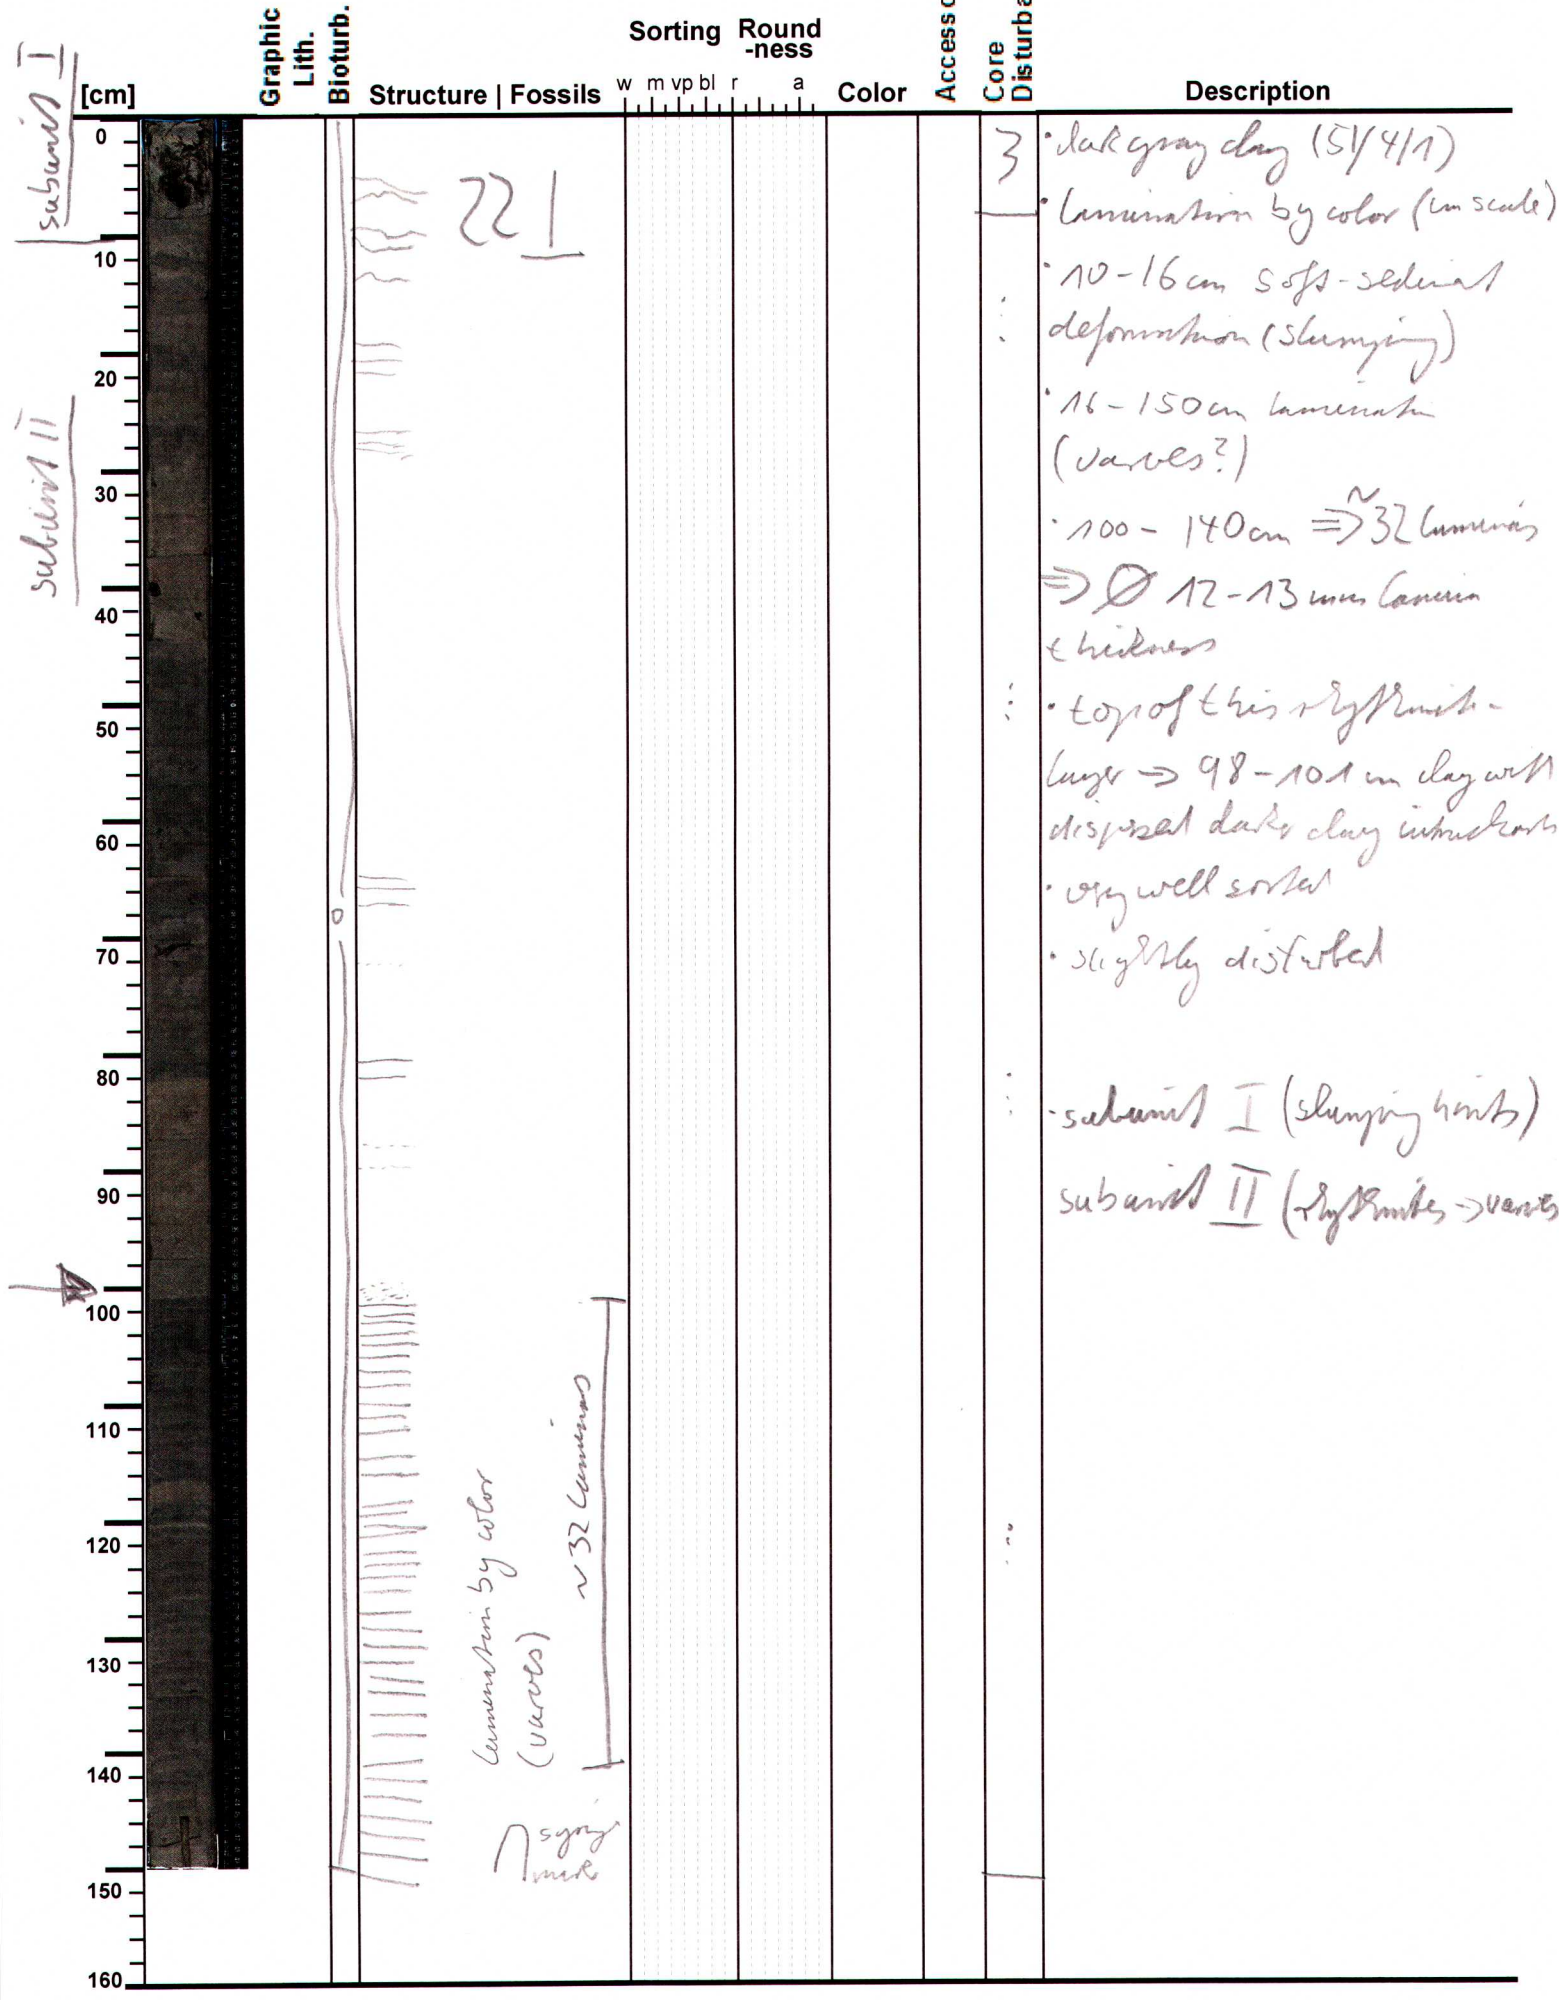 Graphic Lith.
Bioturb.
Structure | Fossils
Sorting
Round -ness
w m vp bl r a
Color
Access
Core Disturba
Description
[cm]
subunit I
subunit II
0
10
20
30
40
50
60
70
80
90
100
110
120
130
140
150
160
221
0
lamination by color
(varves)
~32 laminas
3
· dark gray clay (5Y/4/1)
· lamination by color (cm scale)
· 10-16cm soft-sediment
deformation (slumping)
· 16-150cm lamination
(varves?)
· 100-140cm => ~32 laminas
=> Ø 12-13mm lamina
thickness
· top of this rhythmite-
layer => 98-101cm clay with
dispersed dark clay
· very well sorted
· slightly disturbed
· subunit I (slumping hints)
subunit II (rhythmites -> varves